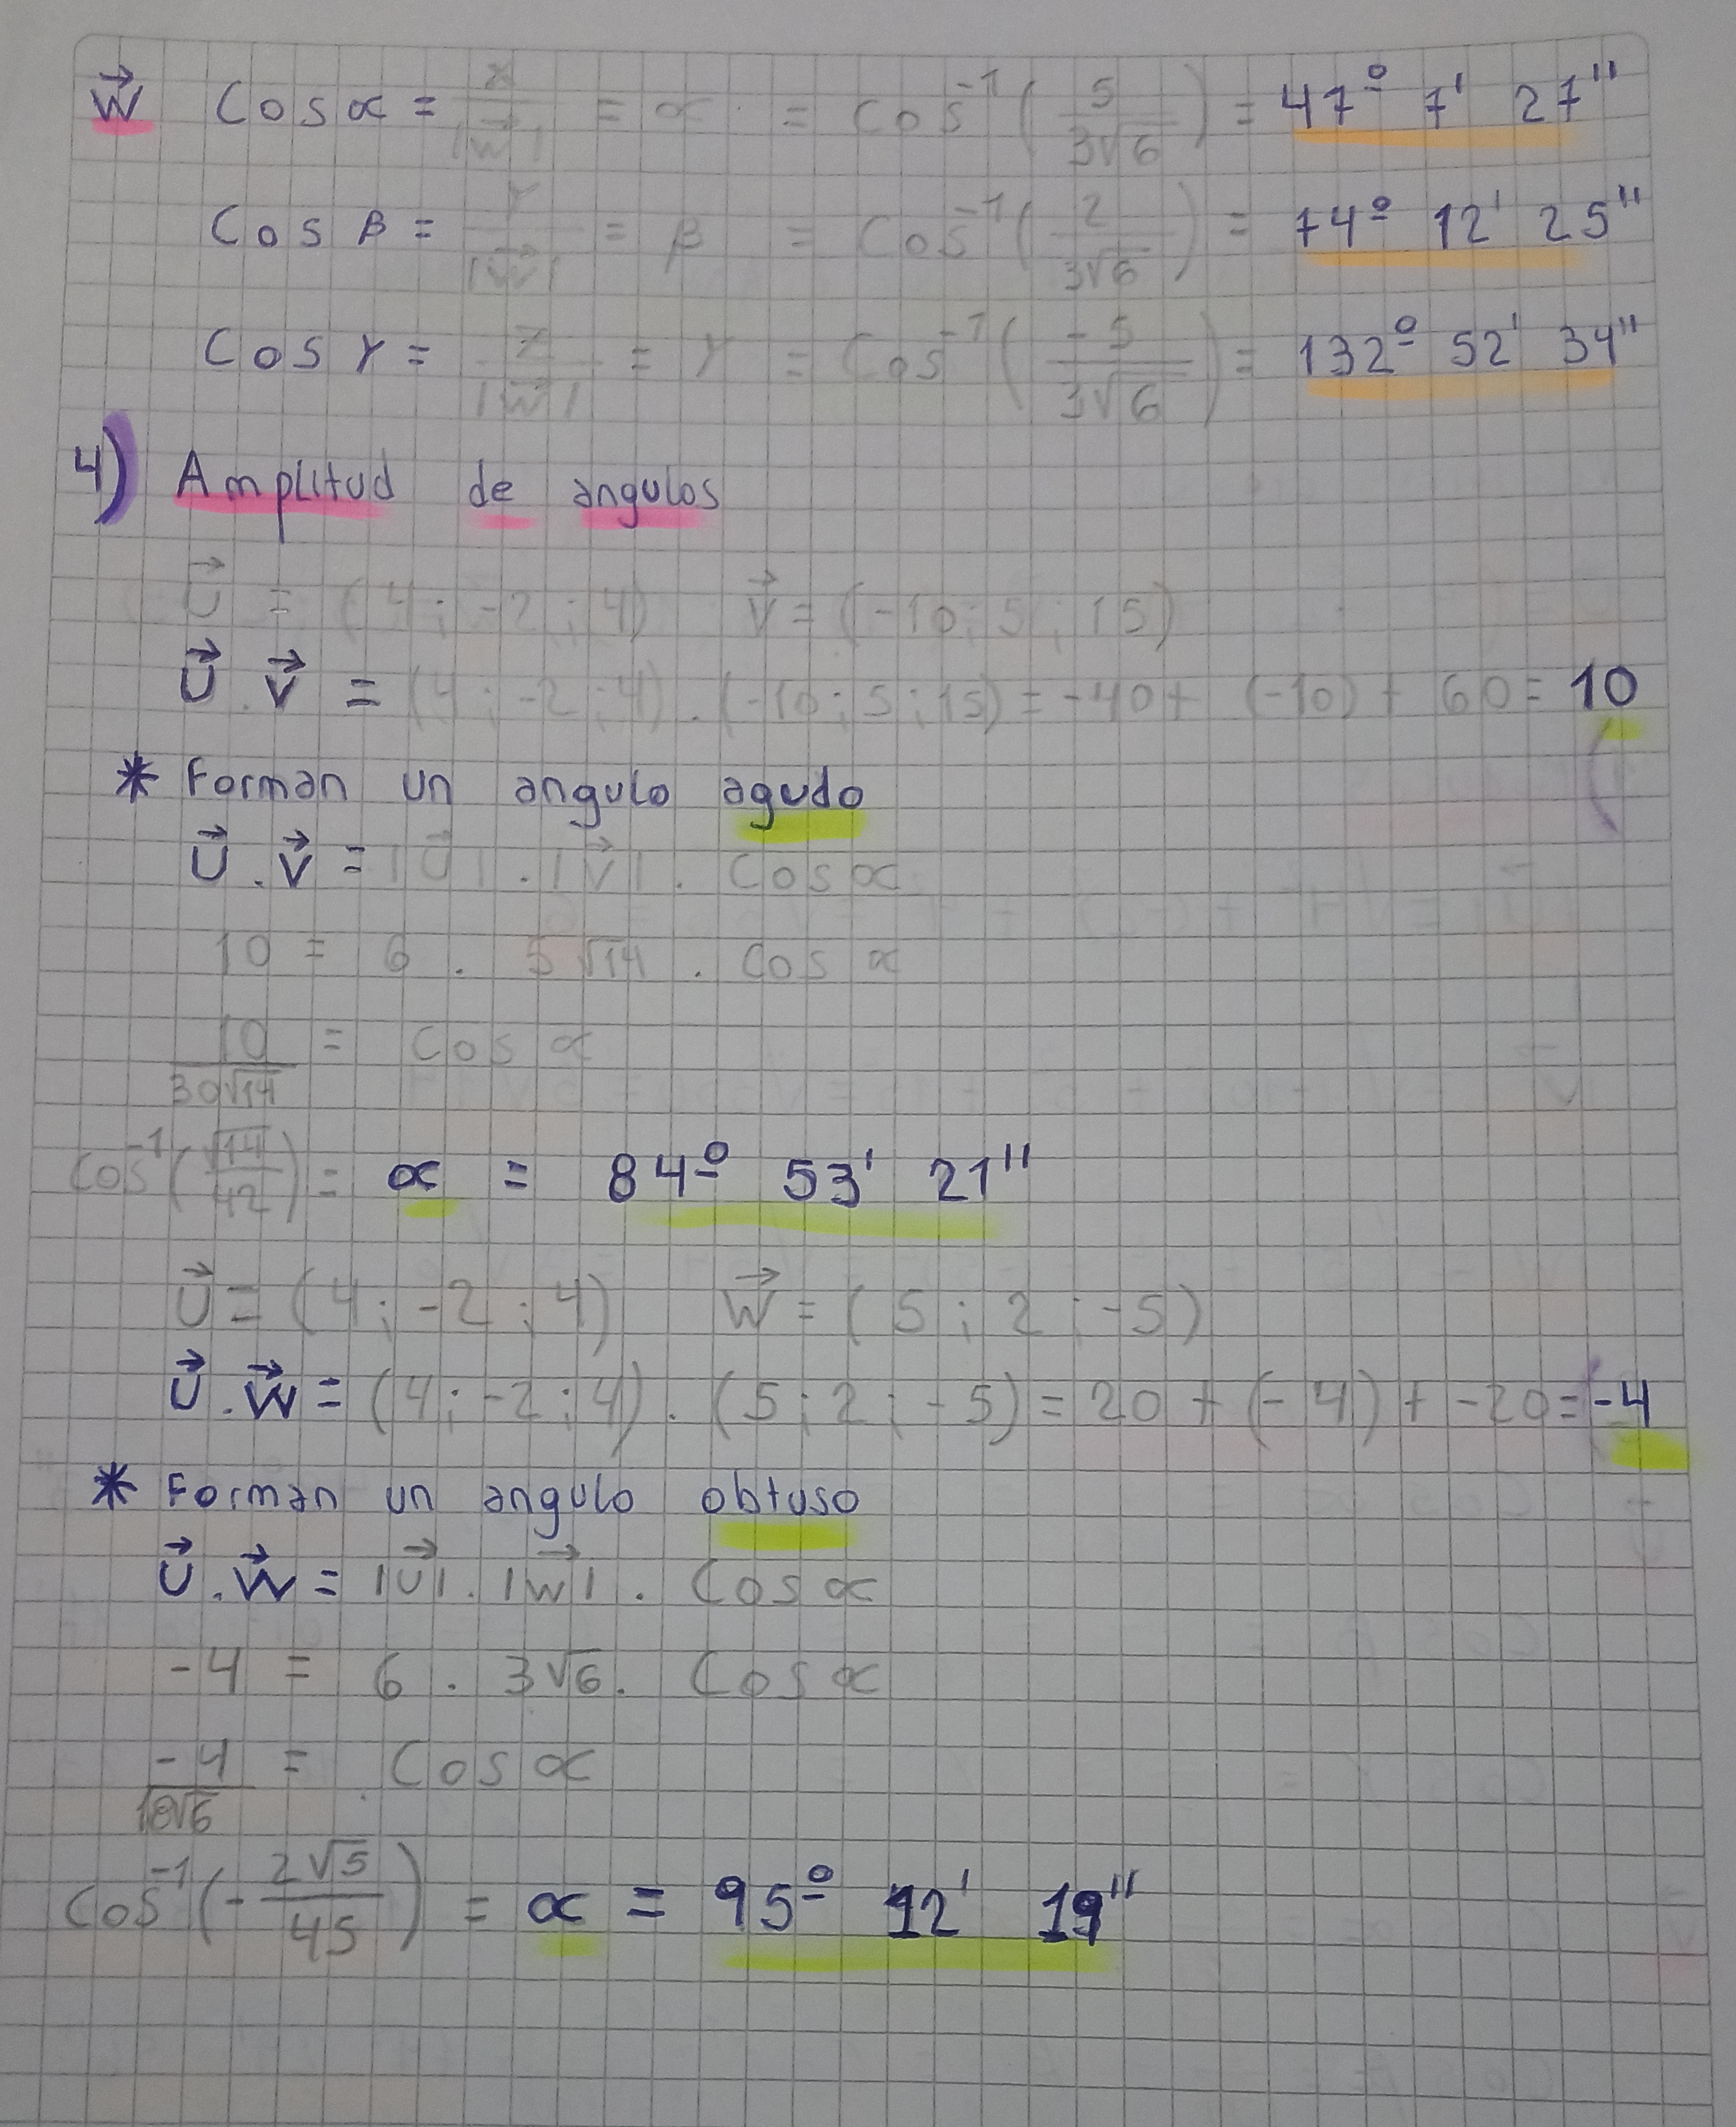 W⃗ Cos α = x/|W⃗| = α = Cos⁻¹ (5/3√6) = 47º 7' 27"
Cos β = Y/|W⃗| = β = Cos⁻¹ (2/3√6) = 74º 12' 25"
Cos γ = z/|W⃗| = γ = Cos⁻¹ (-5/3√6) = 132º 52' 34"
4) Amplitud de angulos
U⃗ = (4; -2; 4) V⃗ = (-10; 5; 15)
U⃗ . V⃗ = (4; -2; 4) . (-10; 5; 15) = -40 + (-10) + 60 = 10
* Forman un angulo agudo
U⃗ . V⃗ = |U⃗| . |V⃗| . Cos α
10 = 6 . 5√14 . Cos α
10/30√14 = Cos α
Cos⁻¹ (√14/42) = α = 84º 53' 21"
U⃗ = (4; -2; 4) W⃗ = (5; 2; -5)
U⃗ . W⃗ = (4; -2; 4) . (5; 2; -5) = 20 + (-4) + -20 = -4
* Forman un angulo obtuso
U⃗ . W⃗ = |U⃗| . |W⃗| . Cos α
-4 = 6 . 3√6 . Cos α
-4/18√6 = Cos α
Cos⁻¹ (-2√5/45) = α = 95º 12' 19"